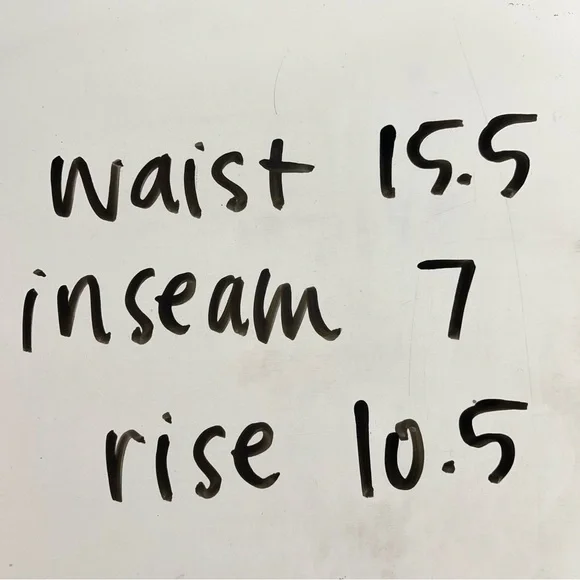 waist 15.5
inseam 7
rise 10.5